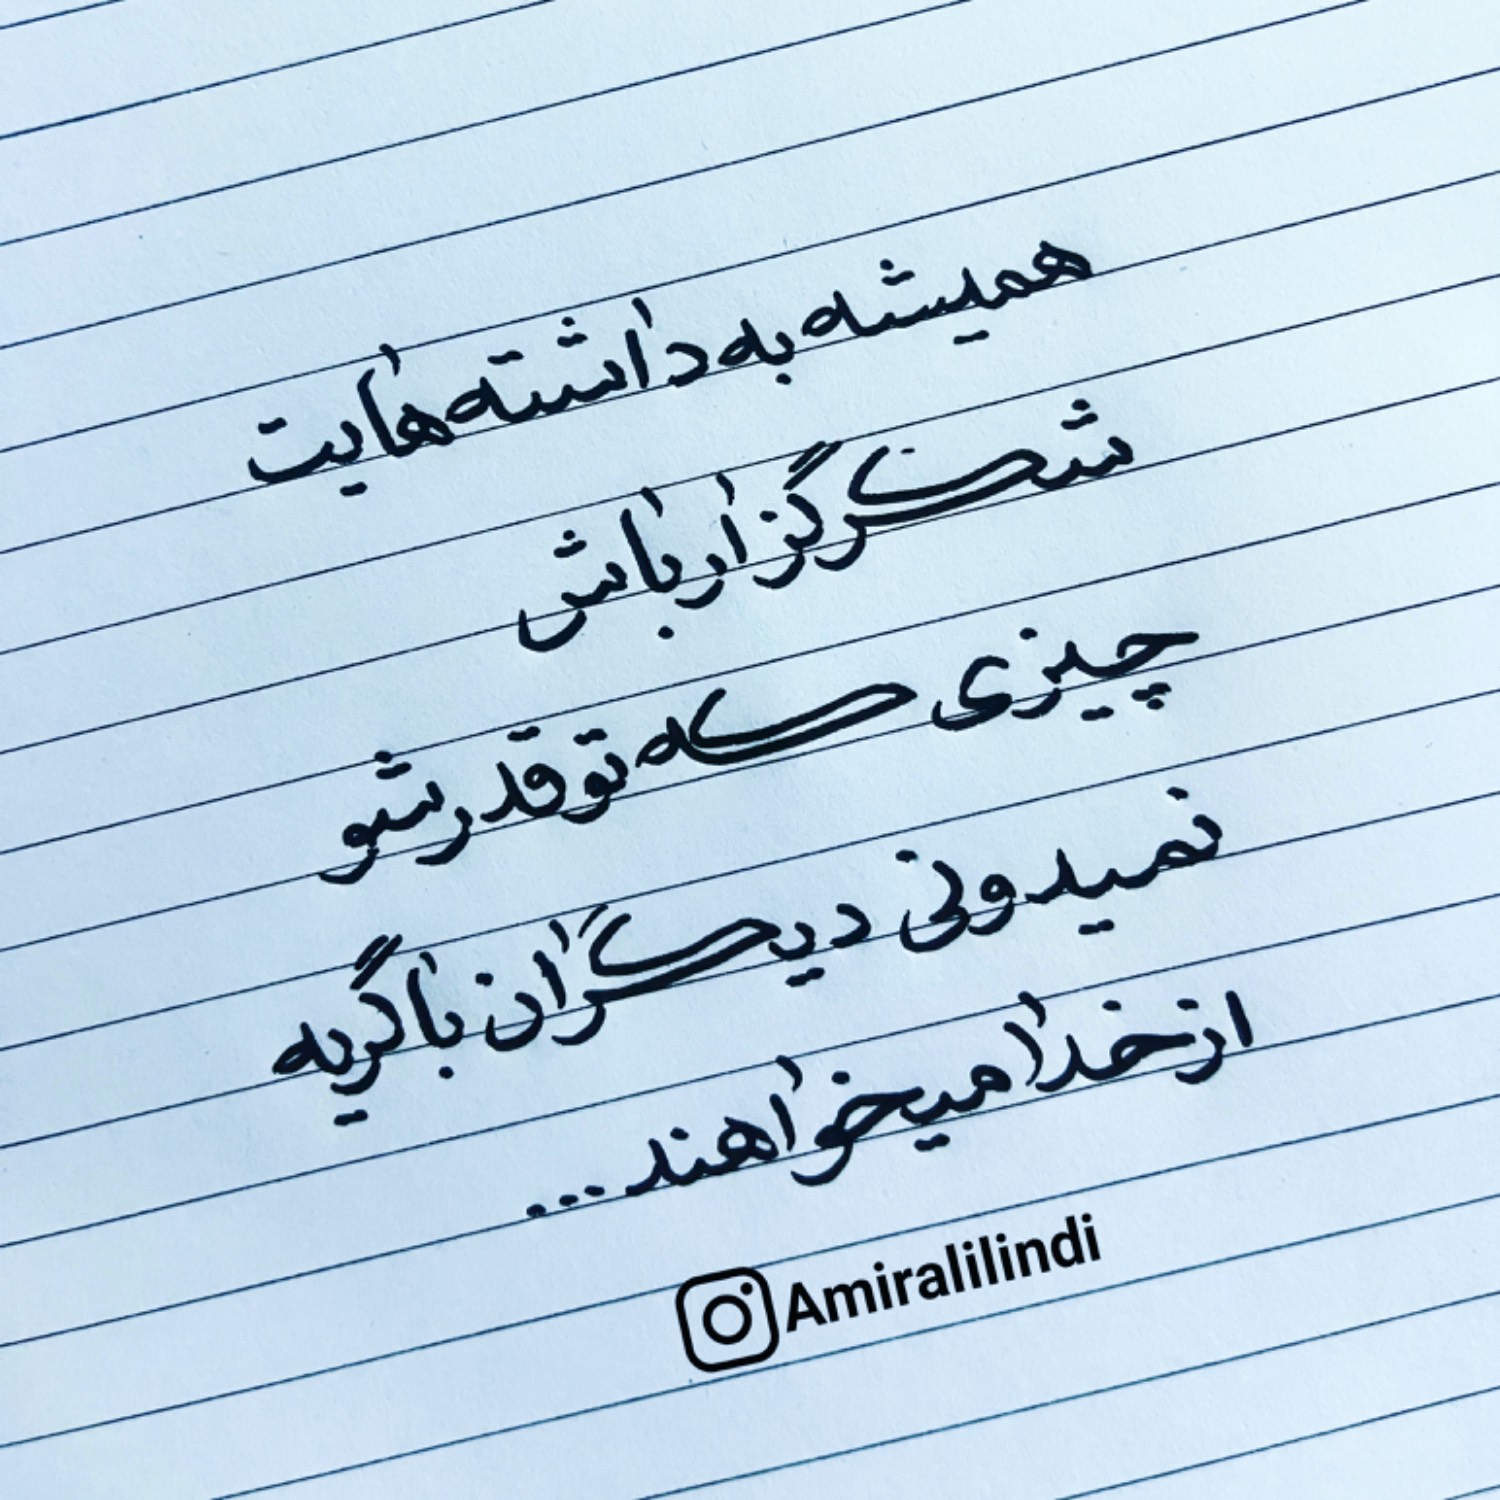 همیشه به داشته هایت
شکرگزار باش
چیزی که تو قدرشو
نمیدونی دیگران با گریه
از خدا میخواهند...
Amiralilindi